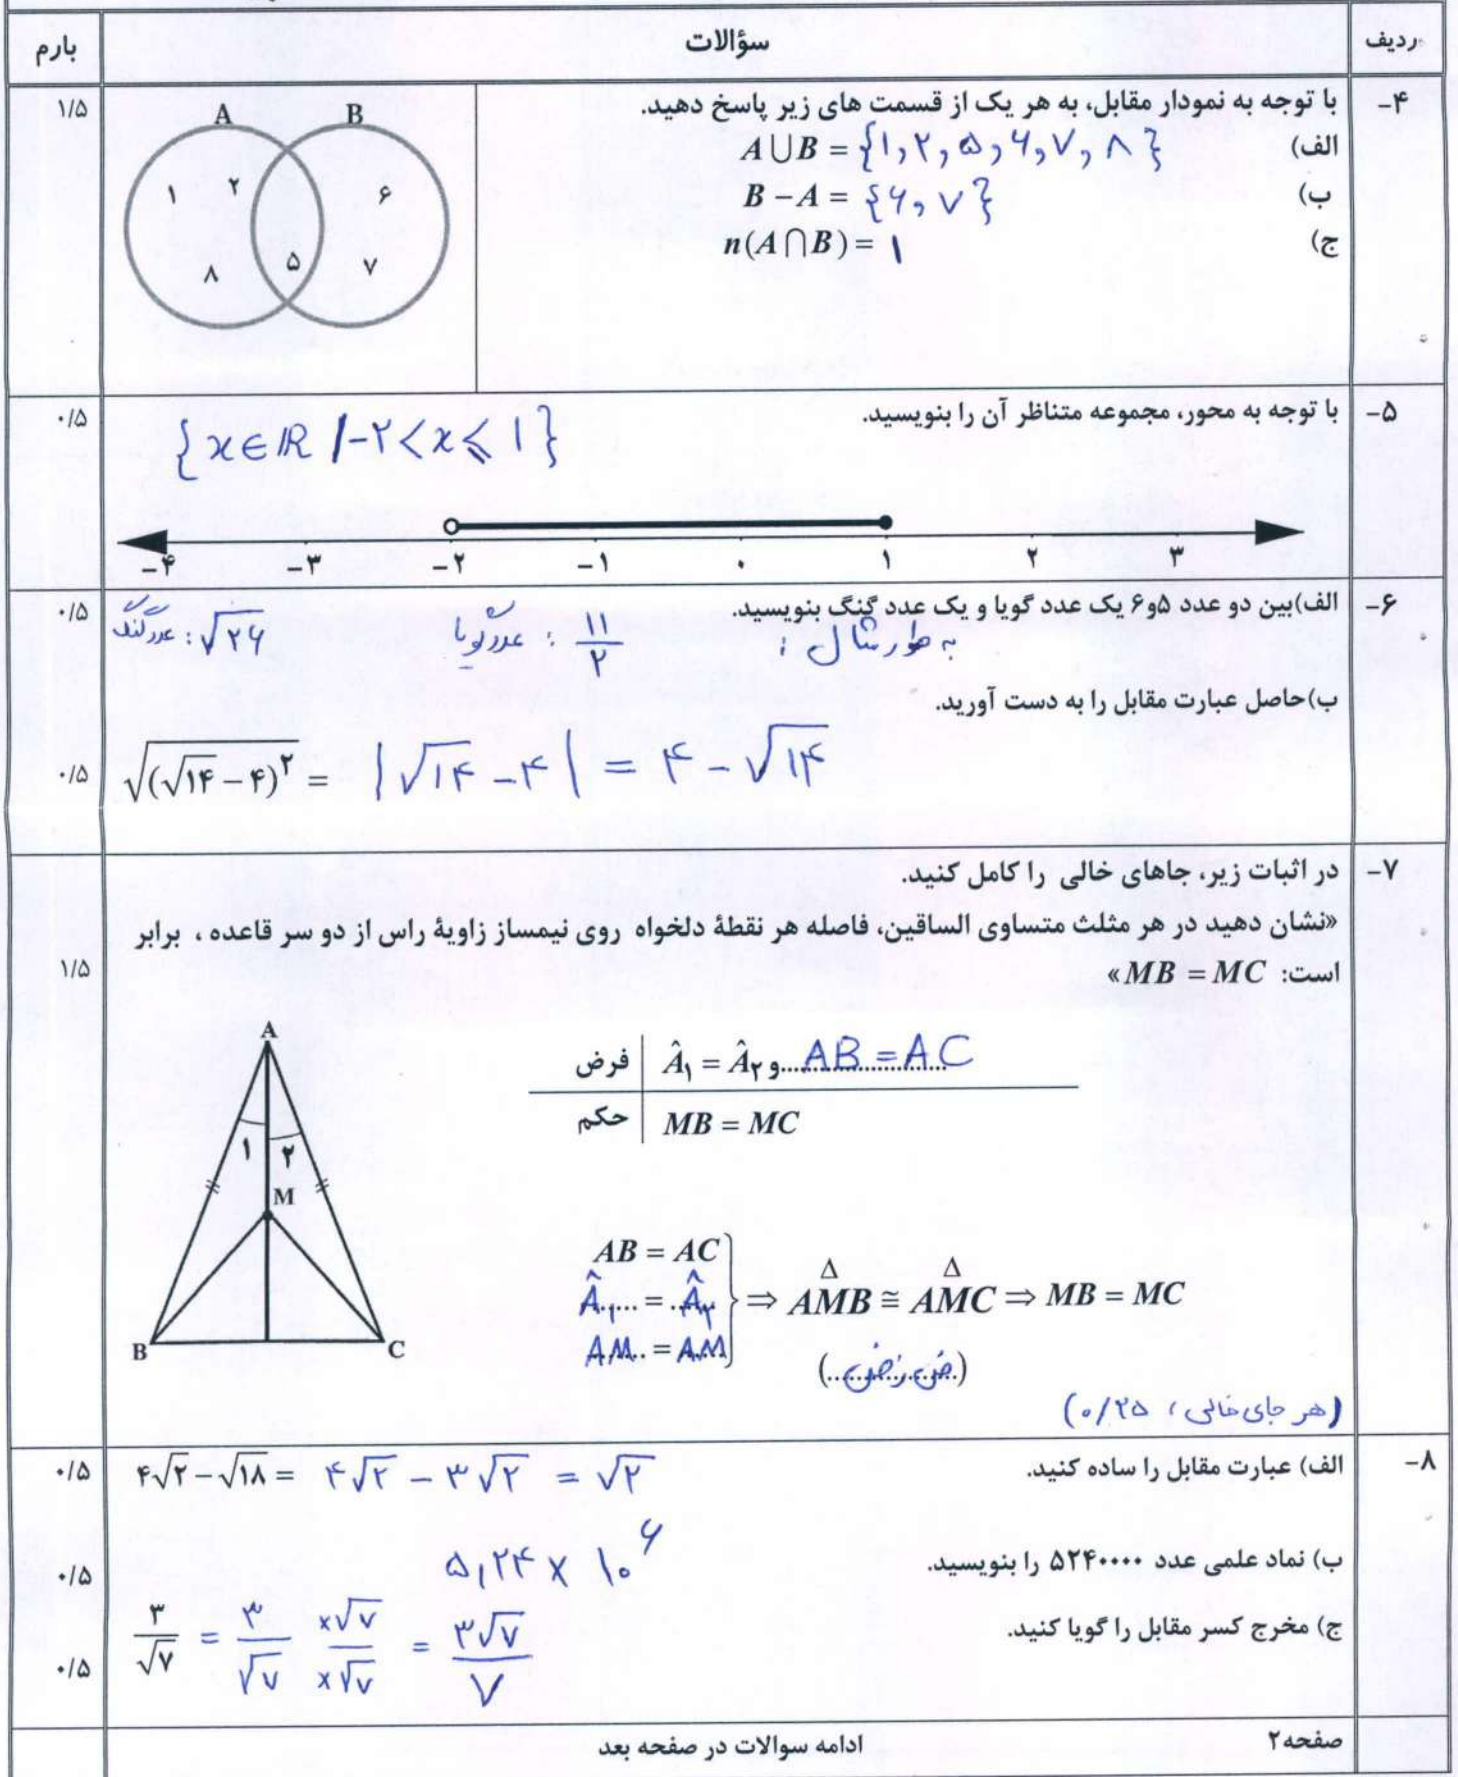 ردیف سؤالات بارم
۴- با توجه به نمودار مقابل، به هر یک از قسمت های زیر پاسخ دهید. ۱/۵
الف) A∪B = {۱, ۲, ۵, ۶, ۷, ۸}
ب) B − A = {۶, ۷}
ج) n(A∩B) = ۱
A B
۱ ۲ ۶
۸ ۵ ۷
۵- با توجه به محور، مجموعه متناظر آن را بنویسید. ۰/۵
{x∈ℝ | −۲ < x ⩽ ۱}
−۴ −۳ −۲ −۱ ۰ ۱ ۲ ۳
۶- الف)بین دو عدد ۵و۶ یک عدد گویا و یک عدد گنگ بنویسید. ۰/۵
به طور مثال : ۱۱/۲ : عدد گویا √۲۶ : عدد گنگ
ب)حاصل عبارت مقابل را به دست آورید.
√((√۱۴ − ۴)^۲) = |√۱۴ − ۴| = ۴ − √۱۴ ۰/۵
۷- در اثبات زیر، جاهای خالی را کامل کنید.
«نشان دهید در هر مثلث متساوی الساقین، فاصله هر نقطهٔ دلخواه روی نیمساز زاویهٔ راس از دو سر قاعده ، برابر
است: MB = MC» ۱/۵
فرض | Â۱ = Â۲ و AB = AC
حکم | MB = MC
A
۱ ۲
M
B C
AB = AC
Â۱ = Â۲ } ⇒ AMB ≅ AMC ⇒ MB = MC
AM = AM
(ض ز ض)
(هر جای خالی، ۰/۲۵)
۸- الف) عبارت مقابل را ساده کنید. ۴√۲ − √۱۸ = ۴√۲ − ۳√۲ = √۲ ۰/۵
ب) نماد علمی عدد ۵۲۴۰۰۰۰ را بنویسید. ۵,۲۴ × ۱۰^۶ ۰/۵
ج) مخرج کسر مقابل را گویا کنید. ۳/√۷ = ۳/√۷ ×√۷/×√۷ = ۳√۷/۷ ۰/۵
صفحه۲ ادامه سوالات در صفحه بعد